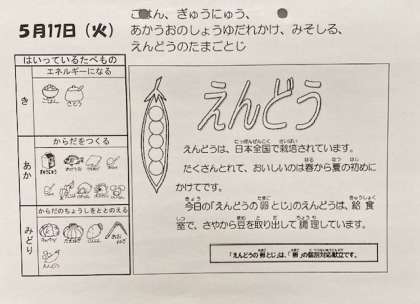 5月17日（火）
ごはん、ぎゅうにゅう、
あかうおのしょうゆだれかけ、みそしる、
えんどうのたまごとじ
はいっているたべもの
エネルギーになる
き
ごはん
さとう
からだをつくる
あか
ぎゅうにゅう
からだのちょうしをととのえる
みどり
えんどう
えんどうは、日本全国で栽培されています。
たくさんとれて、おいしいのは春から夏の初めに
かけてです。
今日の「えんどうの卵とじ」のえんどうは、給食
室で、さやから豆を取り出して調理しています。
「えんどうの卵とじ」は、「卵」の個別対応献立です。